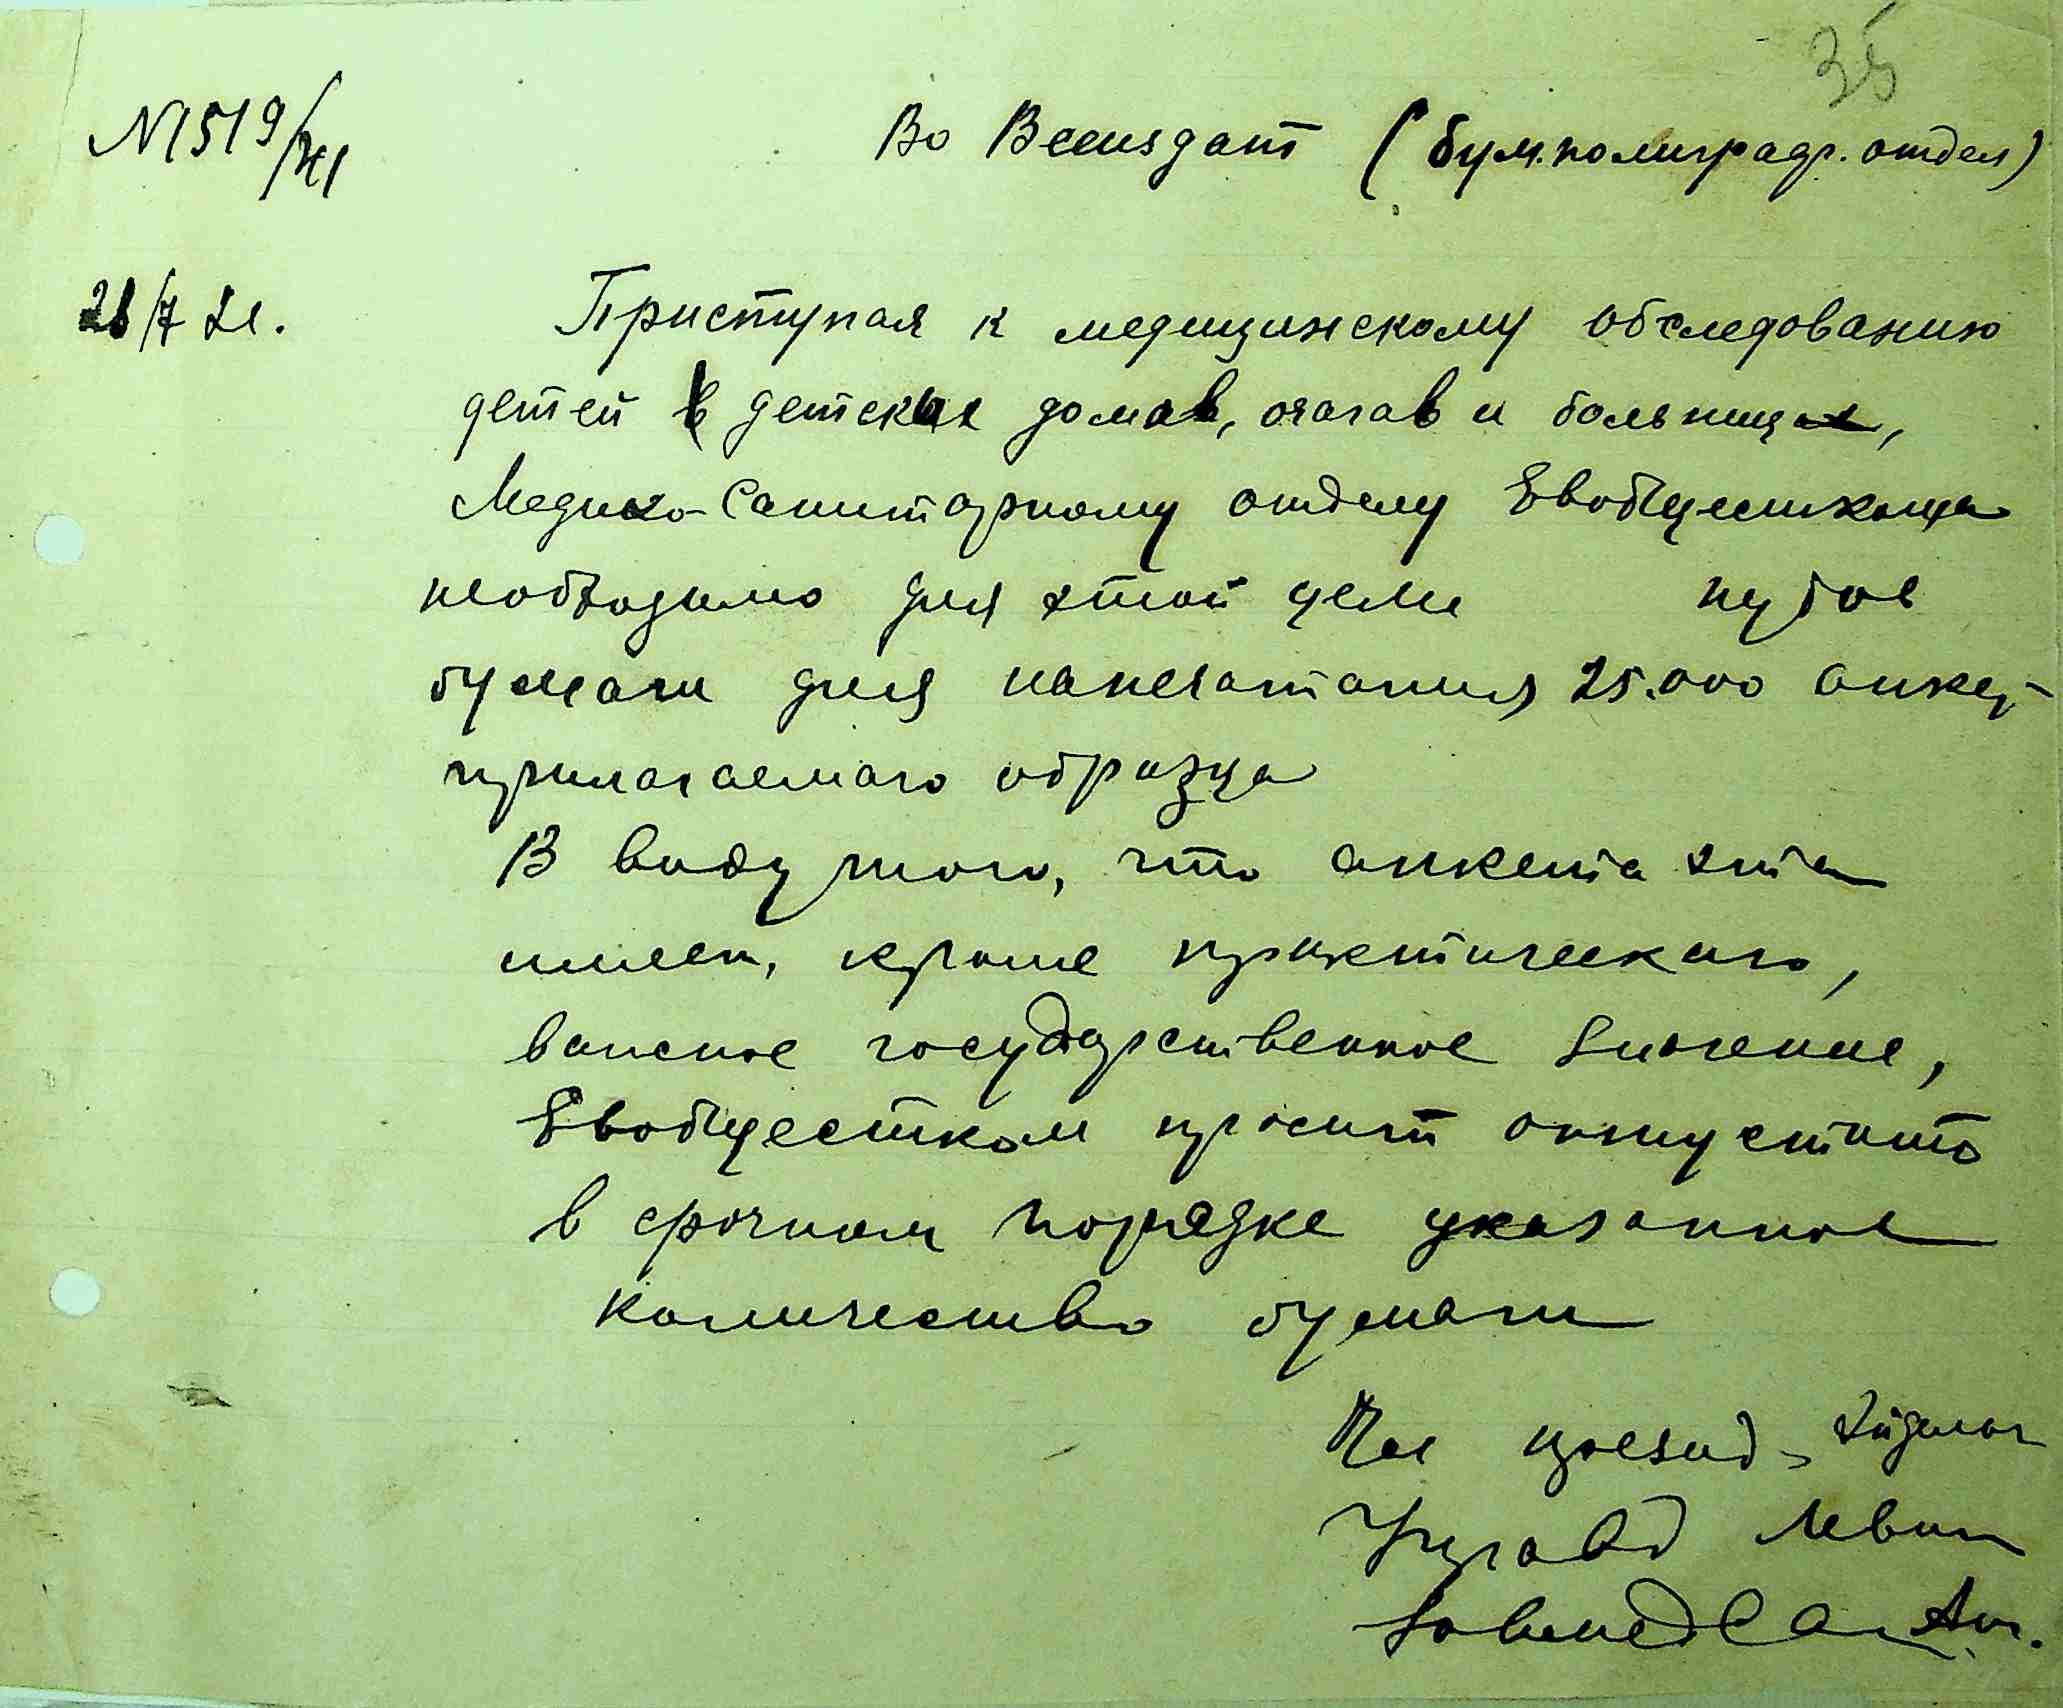 35
N1519/XI
Во Всеиздат (бум. полиграф. отдел)
28/7 21.
Приступая к медицинскому обследованию
детей в детских домов, очагов и больниц,
Медико-Санитарному отделу Евобщесткома
необходимо для этой цели пудов
бумаги для напечатания 25.000 анкет
прилагаемого образца
В виду того, что анкета эта
имеет, кроме практического,
важное государственное значение,
Евобщестком просит отпустить
в срочном порядке указанное
количество бумаги
Чл презид.
Управд Левин
Завмед